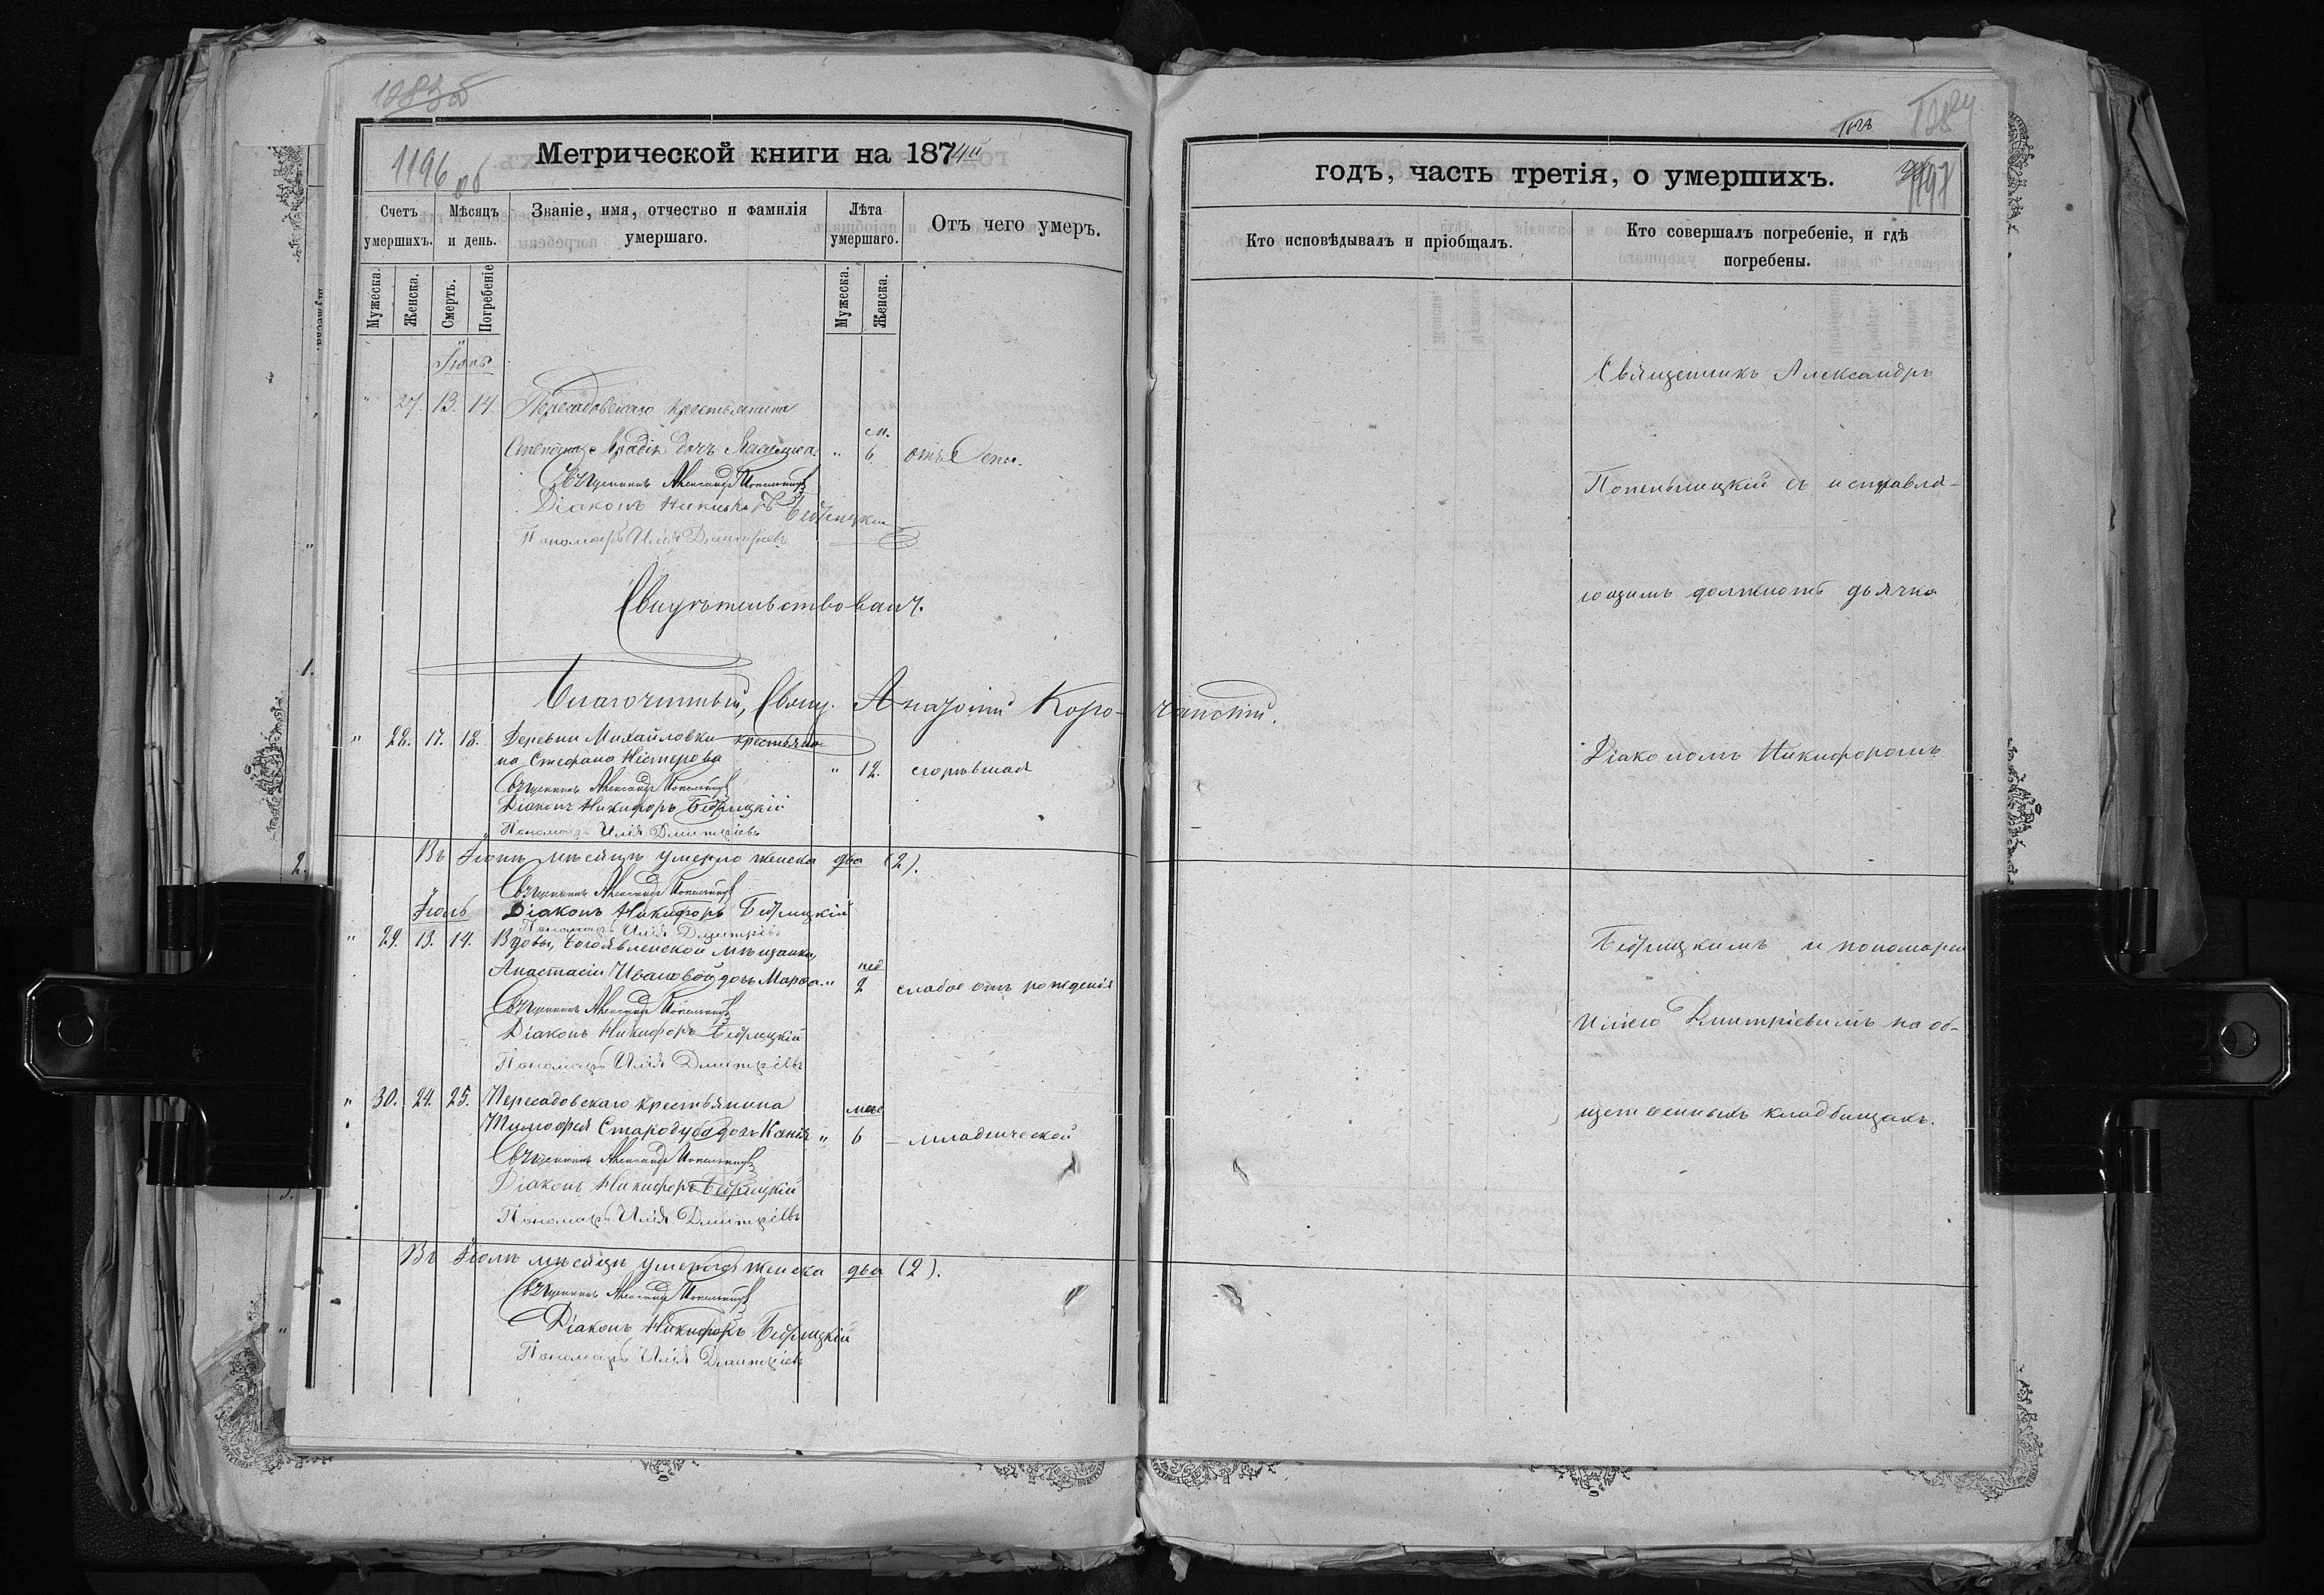 1196 об
Метрической книги на 1874й
Счетъ умершихъ.
Мѣсяцъ и день.
Званіе, имя, отчество и фамилія умершаго.
Лѣта умершаго.
Отъ чего умеръ.
Мужеска.
Женска.
Смерть.
Погребеніе
Мужеска.
Женска.
Іюнь
" 27. 13. 14 Пересадовскаго крестьянина
м.
дочь " 6. отъ Оспы.
Священникъ Александръ
Діаконъ Бедрицкій
Пономарь Илія Дмитріевъ
Свидѣтельствовалъ.
Благочинный, Свящ. Анатолій Коро-чанскій.
" 28. 17. 18. Деревни Михайловки крестьяни-
на Стефана Нестерова " 12. сгорѣвшая
Священникъ Александръ
Діаконъ Никифоръ Бедрицкій
Пономарь Илія Дмитріевъ
Въ Іюнѣ мѣсяцѣ умерло женска два (2).
Священникъ Александръ
Іюль Діаконъ Никифоръ Бедрицкій
Пономарь Илія Дмитріевъ
" 29. 13. 14. Вдовы, Богоявленской мѣщанки
нед
Анастасіи Ивановой дочь Марфа " 2 слабое отъ рожденія
Священникъ Александръ
Діаконъ Никифоръ Бедрицкій
Пономарь Илія Дмитріевъ
" 30. 24. 25. Пересадовскаго крестьянина
Тимофея Стародуба дочь " 6 – младенческой
Священникъ Александръ
Діаконъ Никифоръ Бедрицкій
Пономарь Илія Дмитріевъ
Въ Іюлѣ мѣсяцѣ умерло женска два (2).
Священникъ Александръ
Діаконъ Никифоръ Бедрицкій
Пономарь Илія Дмитріевъ
годъ, часть третія, о умершихъ.
Кто исповѣдывалъ и пріобщалъ.
Кто совершалъ погребеніе, и гдѣ погребены.
Священникъ Александръ
съ исправля-
ющимъ должность дьячка
Діакономъ Никифоромъ
Бедрицкимъ и пономаремъ
Иліею Дмитріевымъ на об-
щественныхъ кладбищахъ.